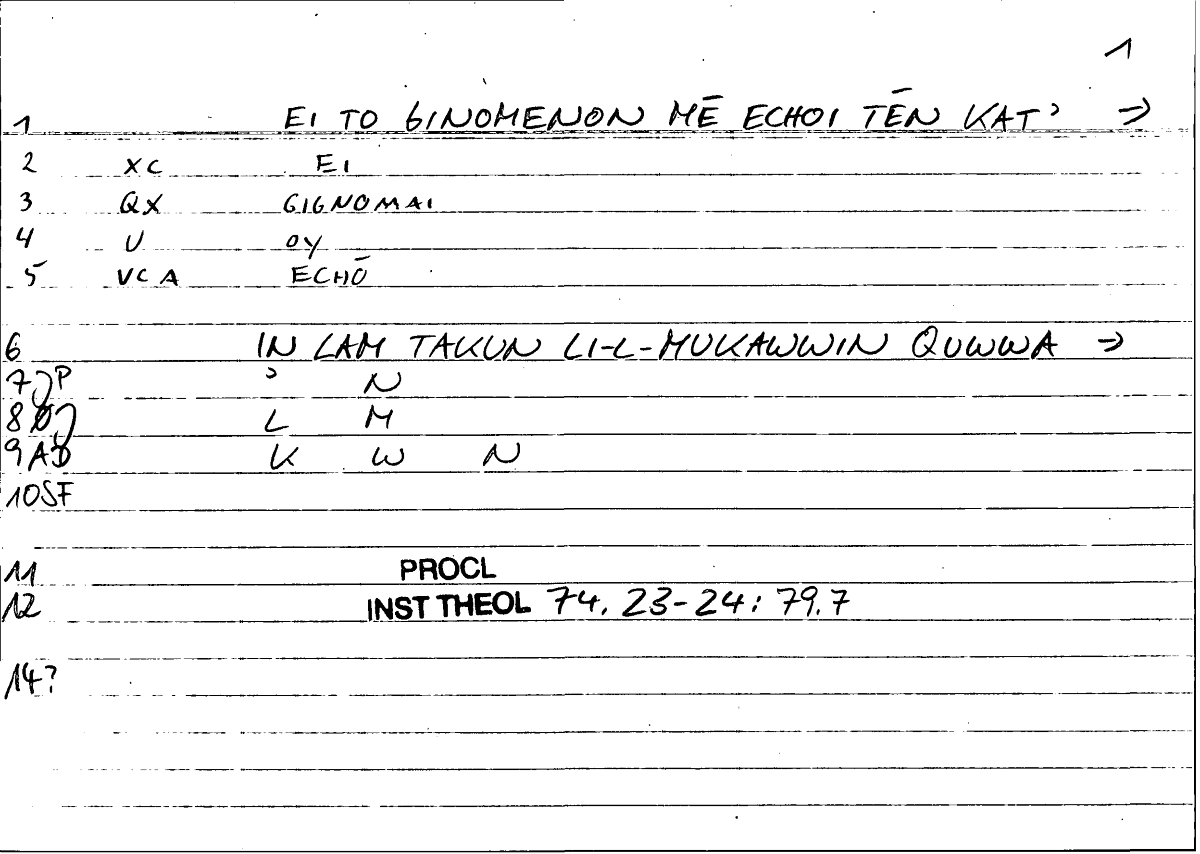 1
1 EI TO GINOMENON MĒ ECHOI TĒN KAT' →
2 XC EI
3 QX GIGNOMAI
4 U OY
5 VCA ECHŌ
6 IN LAM TAKUN LI-L-MUKAWWIN QUWWA →
7 P ʾ N
8 L M
9 AD K W N
10 SF
11 PROCL
12 INST THEOL 74. 23-24 : 79.7
14?